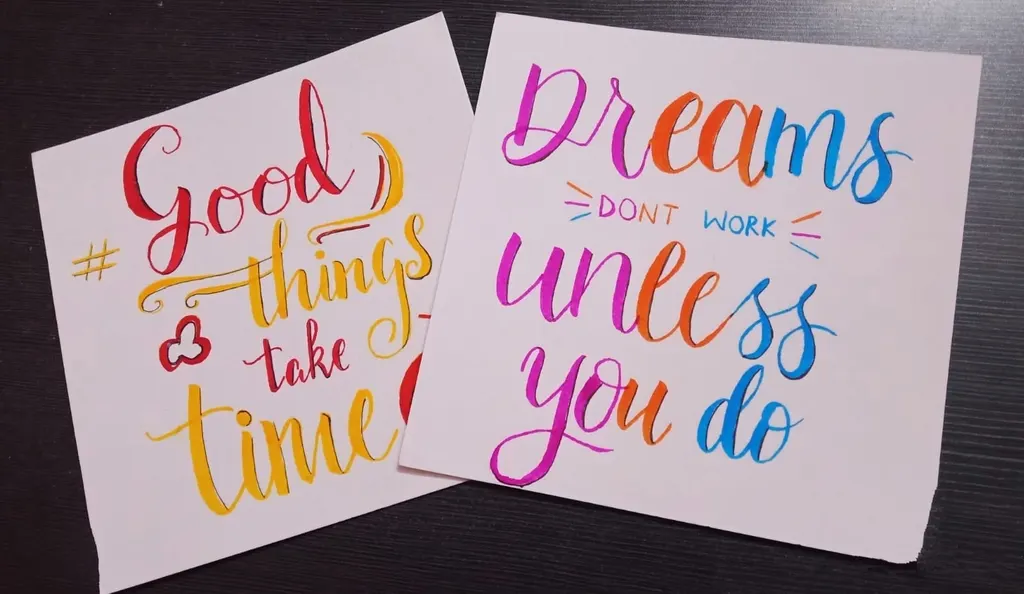 Good
# things
take
time
Dreams
DONT WORK
unless
you do